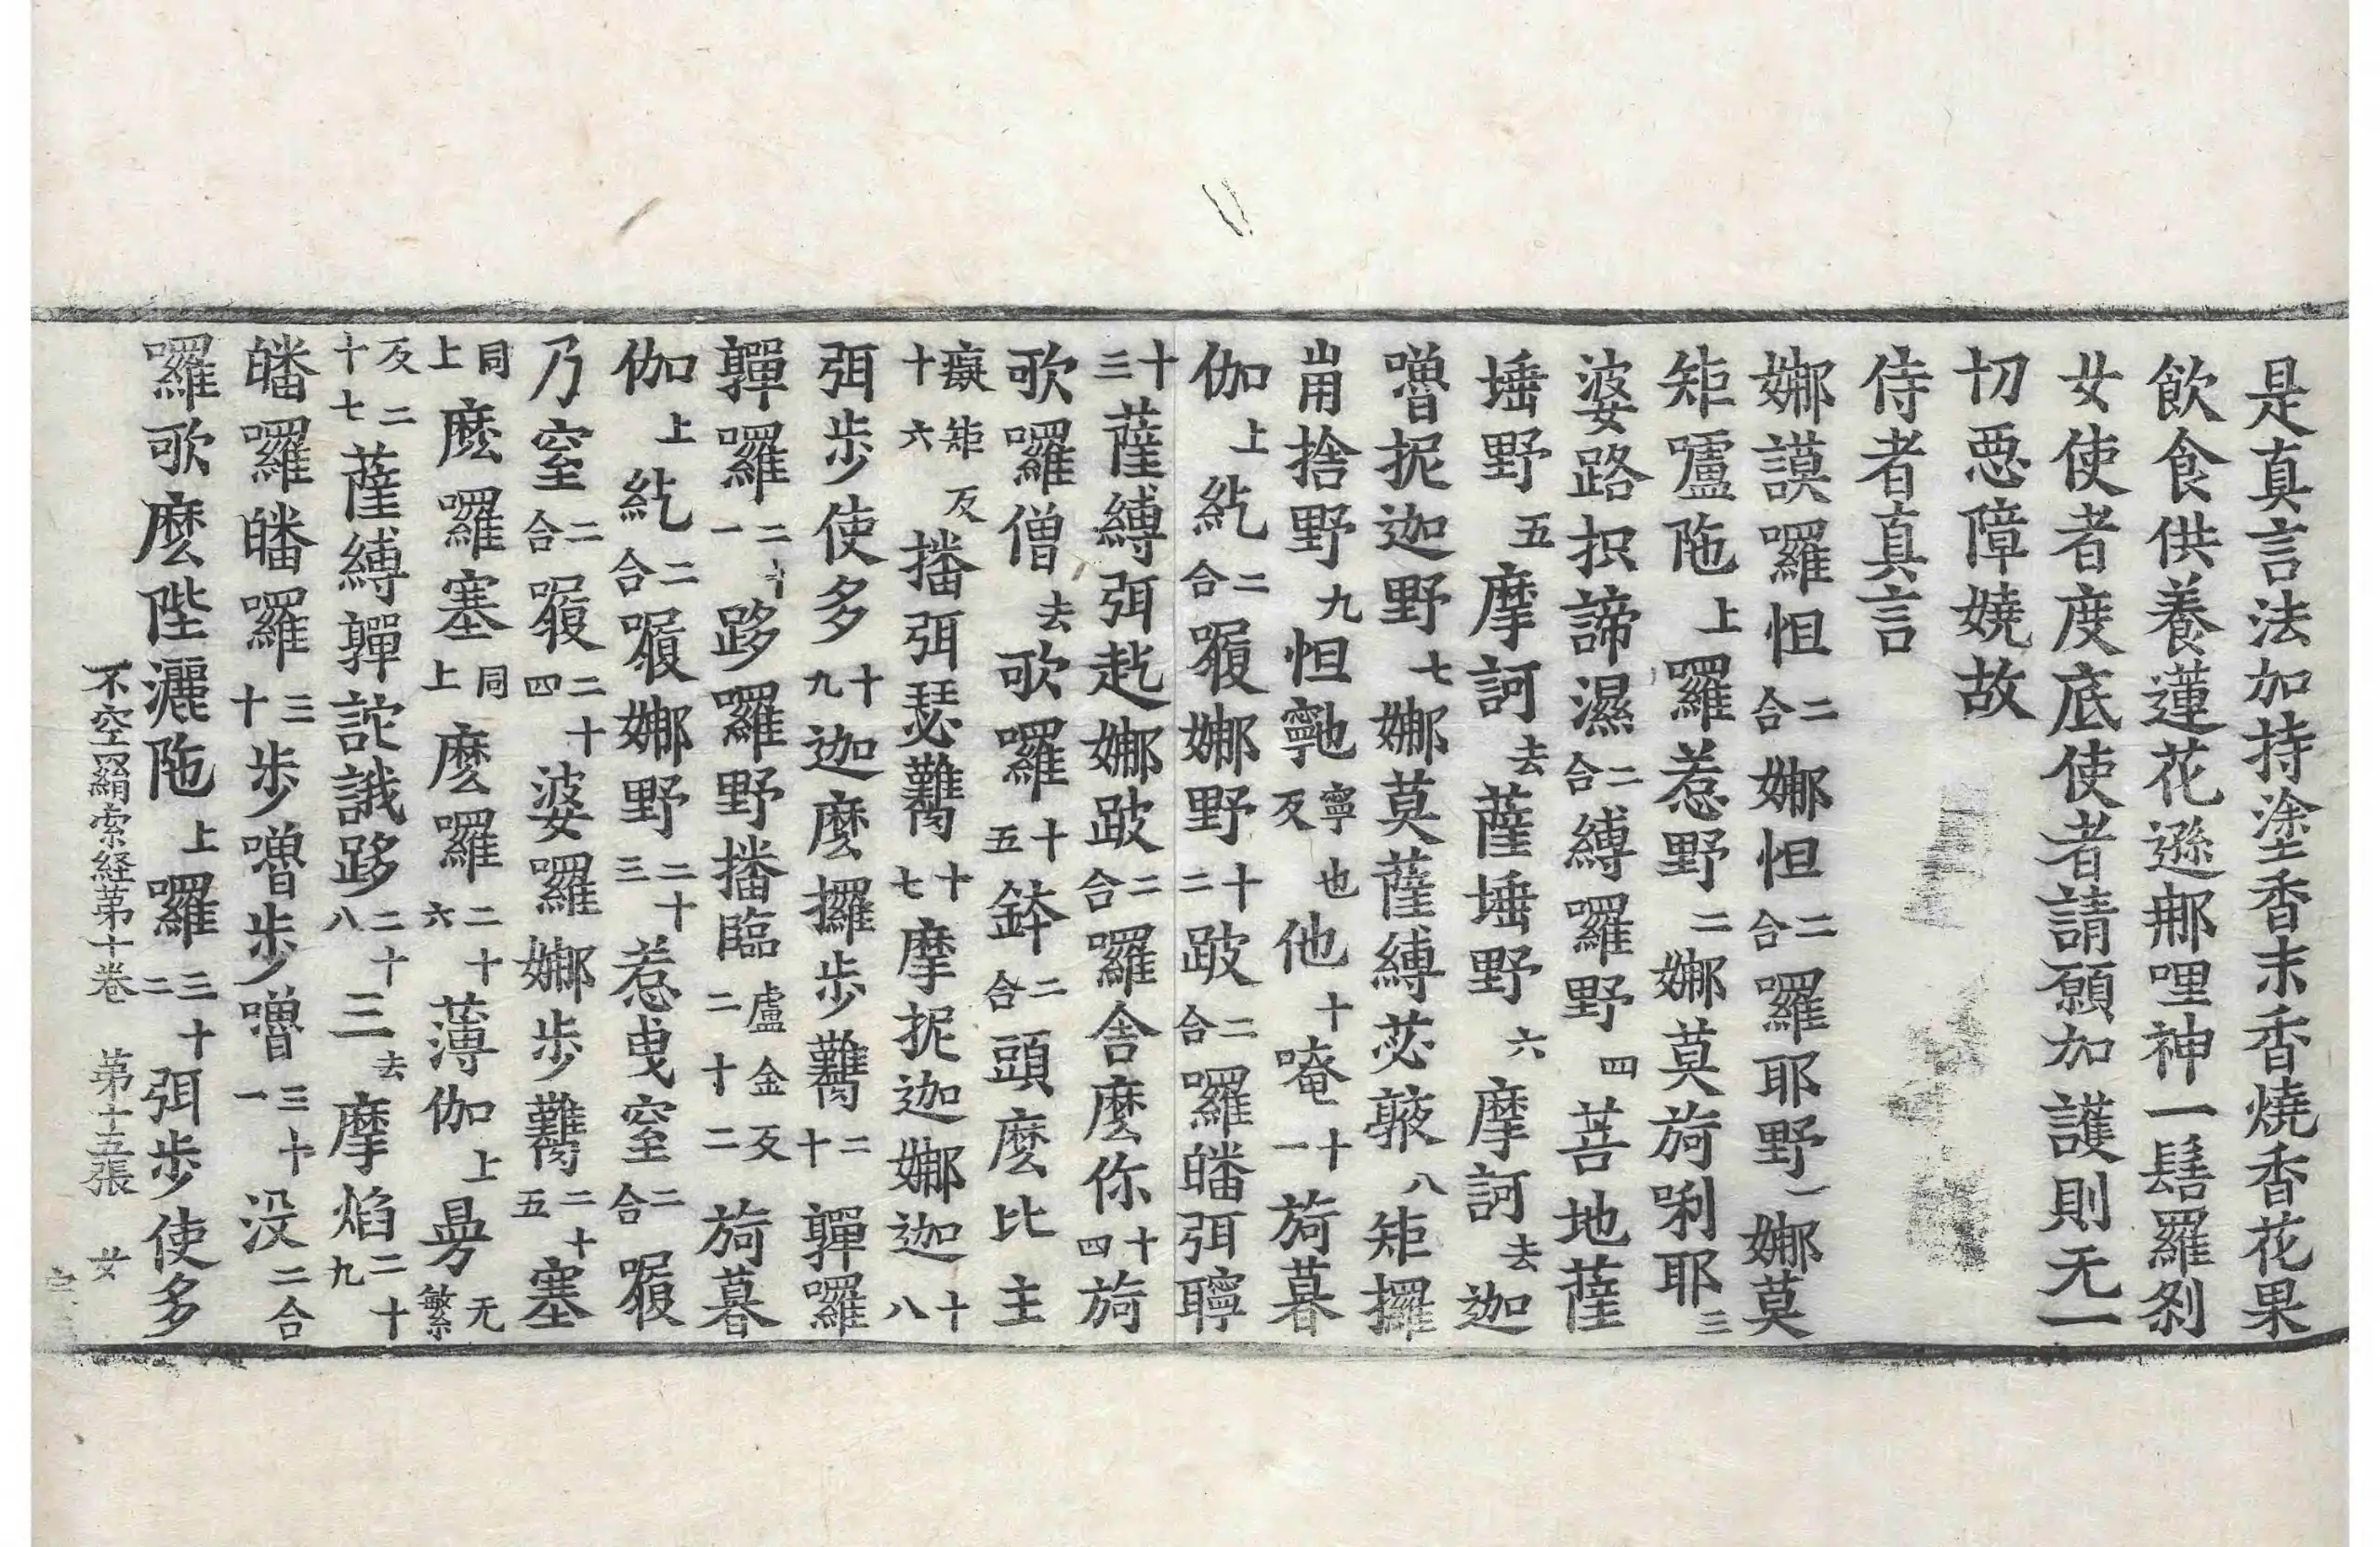 是真言法加持塗香末香燒香花果
飲食供養蓮花遜郍哩神一髻羅剎
女使者度底使者請願加護則无一
切惡障嬈故
侍者真言
娜謨囉怛二合娜怛二合羅耶野一娜莫
矩嚧陁上羅惹野二娜莫旖唎耶三
婆路抧諦濕二合縛囉野四菩地薩
埵野五摩訶去薩埵野六摩訶去迦
嚕抳迦野七娜莫薩縛苾㢤八矩攞
捨野九怛寧也反他十唵十一旖暮
伽上紇二合娜野十二跛二合囉皤弭聹
十三薩縛弭娜跛二合囉舍麽你十四旖
歌囉僧去歌囉十五鉢二合頭麽比主
癡矩反十六播弭瑟十七摩抳迦娜迦十八
弭步使多十九迦麽攞步二十囉
囉二十一跢囉野播臨盧金反二十二旖暮
伽上紇二合娜野二十三惹曳窒二合
乃窒二合二十四婆囉娜步二十五塞
同上麽囉塞同上麽囉二十六薄伽上无繁
反二十七薩縛詫誐跢二十八三去摩焰二十九
皤囉皤囉三十步嚕步嚕三十一没二合
囉歌麽陛灑陁上羅三十二弭步使多
不空羂索経第十卷 第十五張 女